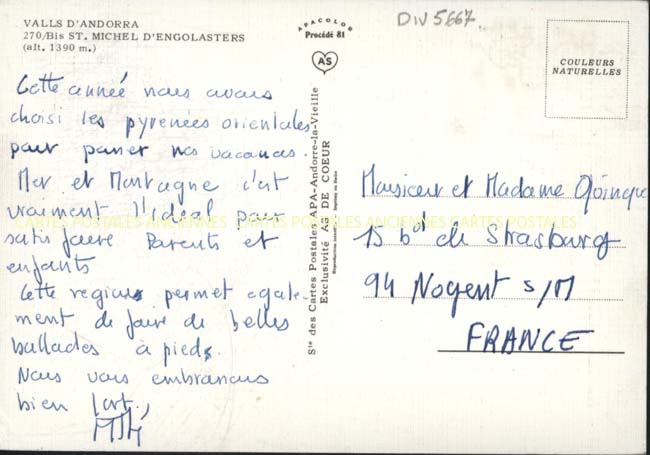 VALLS D'ANDORRA
270/Bis ST. MICHEL D'ENGOLASTERS
(alt. 1390 m.)
Cette année nous avons
choisi les pyrenées orientales
pour passer nos vacances.
Mer et Montagne c'est
vraiment l'idéal pour
satisfaire Parents et
enfants
Cette region permet egale-
ment de faire de belles
ballades à pieds.
Nous vous embrassons
bien fort,
APACOLOR
Procédé 81
AS
Ste des Cartes Postales APA-Andorre-la-Vieille
Exclusivité AS DE COEUR
DIV 5667
COULEURS
NATURELLES
Monsieur et Madame
15 bd de Strasbourg
94 Nogent s/M
FRANCE
CARTES POSTALES ANCIENNES CARTES POSTALES